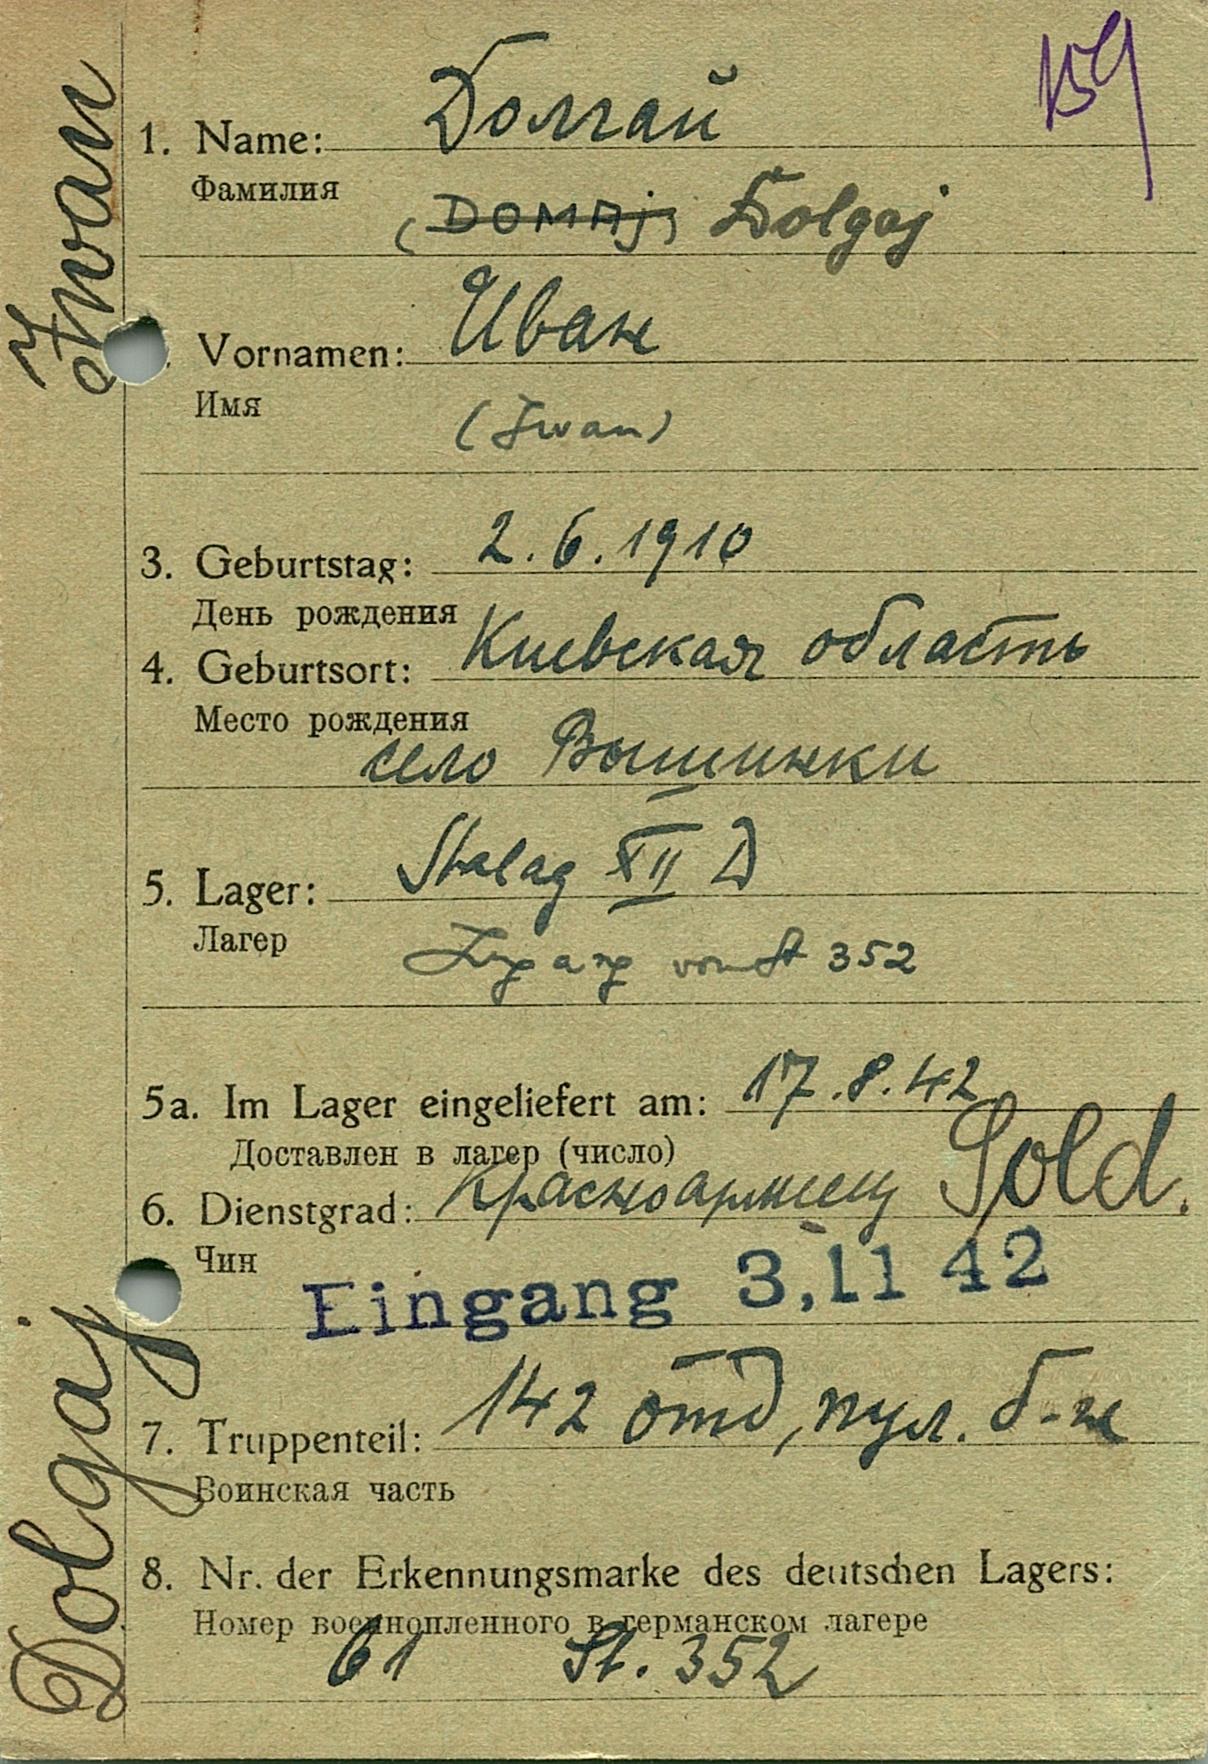 159
1. Name: Долгай
Фамилия
(DOMAj) Dolgaj
Vornamen: Иван
Имя
(Iwan)
3. Geburtstag: 2.6.1910
День рождения
4. Geburtsort: Киевская область
Место рождения
село Вышинки
5. Lager: Stalag XII D
Лагер
Zugang vom St 352
5a. Im Lager eingeliefert am: 17.8.42
Доставлен в лагер (число)
6. Dienstgrad: Красноармеец Sold.
Чин
Eingang 3,11 42
7. Truppenteil: 142 отд, пул. б-н
Воинская часть
8. Nr. der Erkennungsmarke des deutschen Lagers:
Номер военнопленного в германском лагере
61 St. 352
Dolgaj Iwan